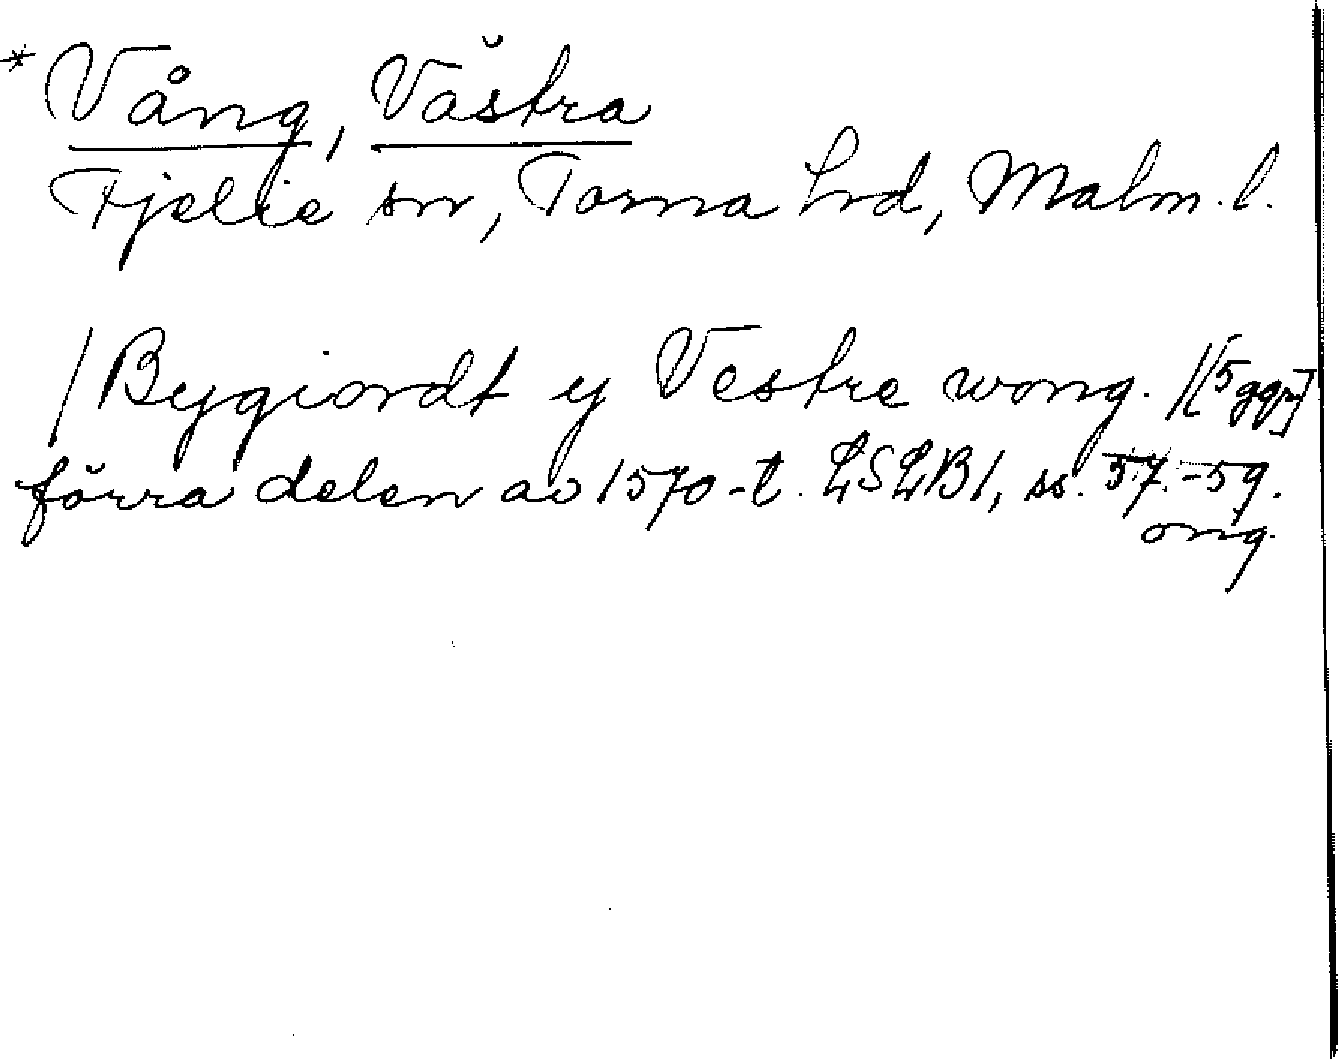 *Vång, Västra
Fjelie sn, Torna hrd, Malm. l.
/Bygiordt y Vestre wong. /[5 ggr]
förra delen av 1570-t. LSLB1, ss. 57-59.
orig.